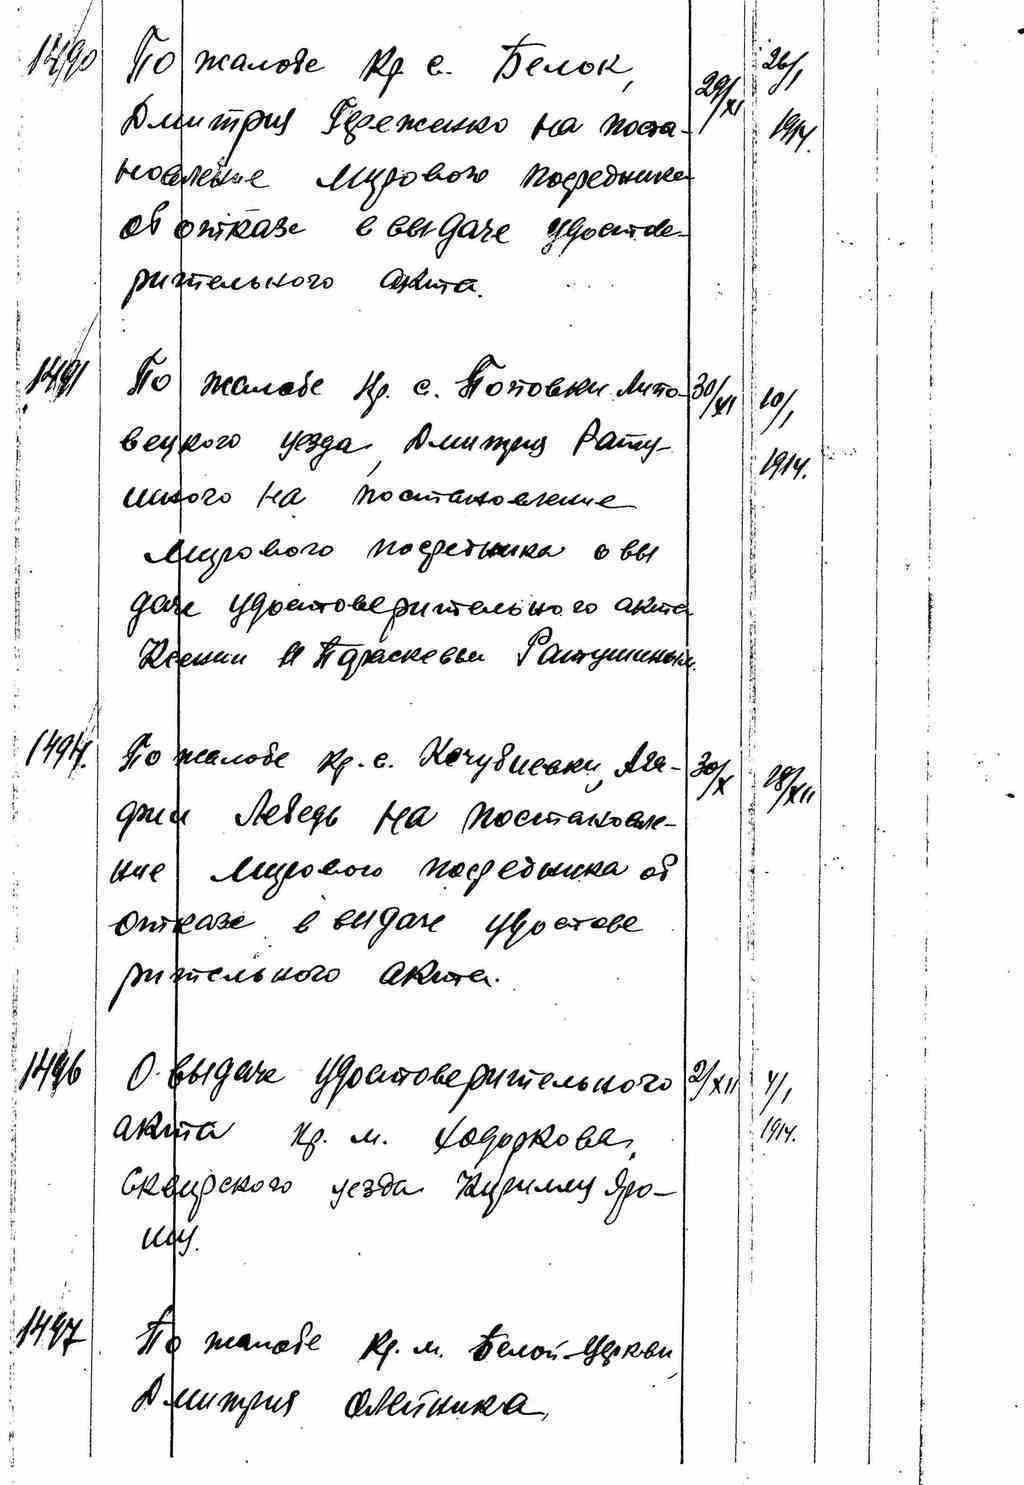 1490 По жалобе кр. с. Белок, 29/XI 26/I
Дмитрия Гереженко на поста- 1914.
новление мирового посредника
об отказе в выдаче удостове-
рительного акта.
1491 По жалобе кр. с. Поповки Липо- 30/XI 10/I
вецкого уезда, Дмитрия Рату- 1914.
шного на постановление
мирового посредника о вы
даче удостоверительного акта
Ксении и Параскевы Ратушиным.
1494. По жалобе кр. с. Кочубиевки, Ага- 30/X 28/XII
фии Лебедь на постановле-
ние мирового посредника об
отказе в выдаче удостове
рительного акта.
1496 О выдаче удостоверительного 2/XII 4/I
акта кр. м. Ходоркова, 1914.
Сквирского уезда Кириллу Яро-
шу.
1497 По жалобе кр. м. Белой-Церкви,
Дмитрия Олейника,